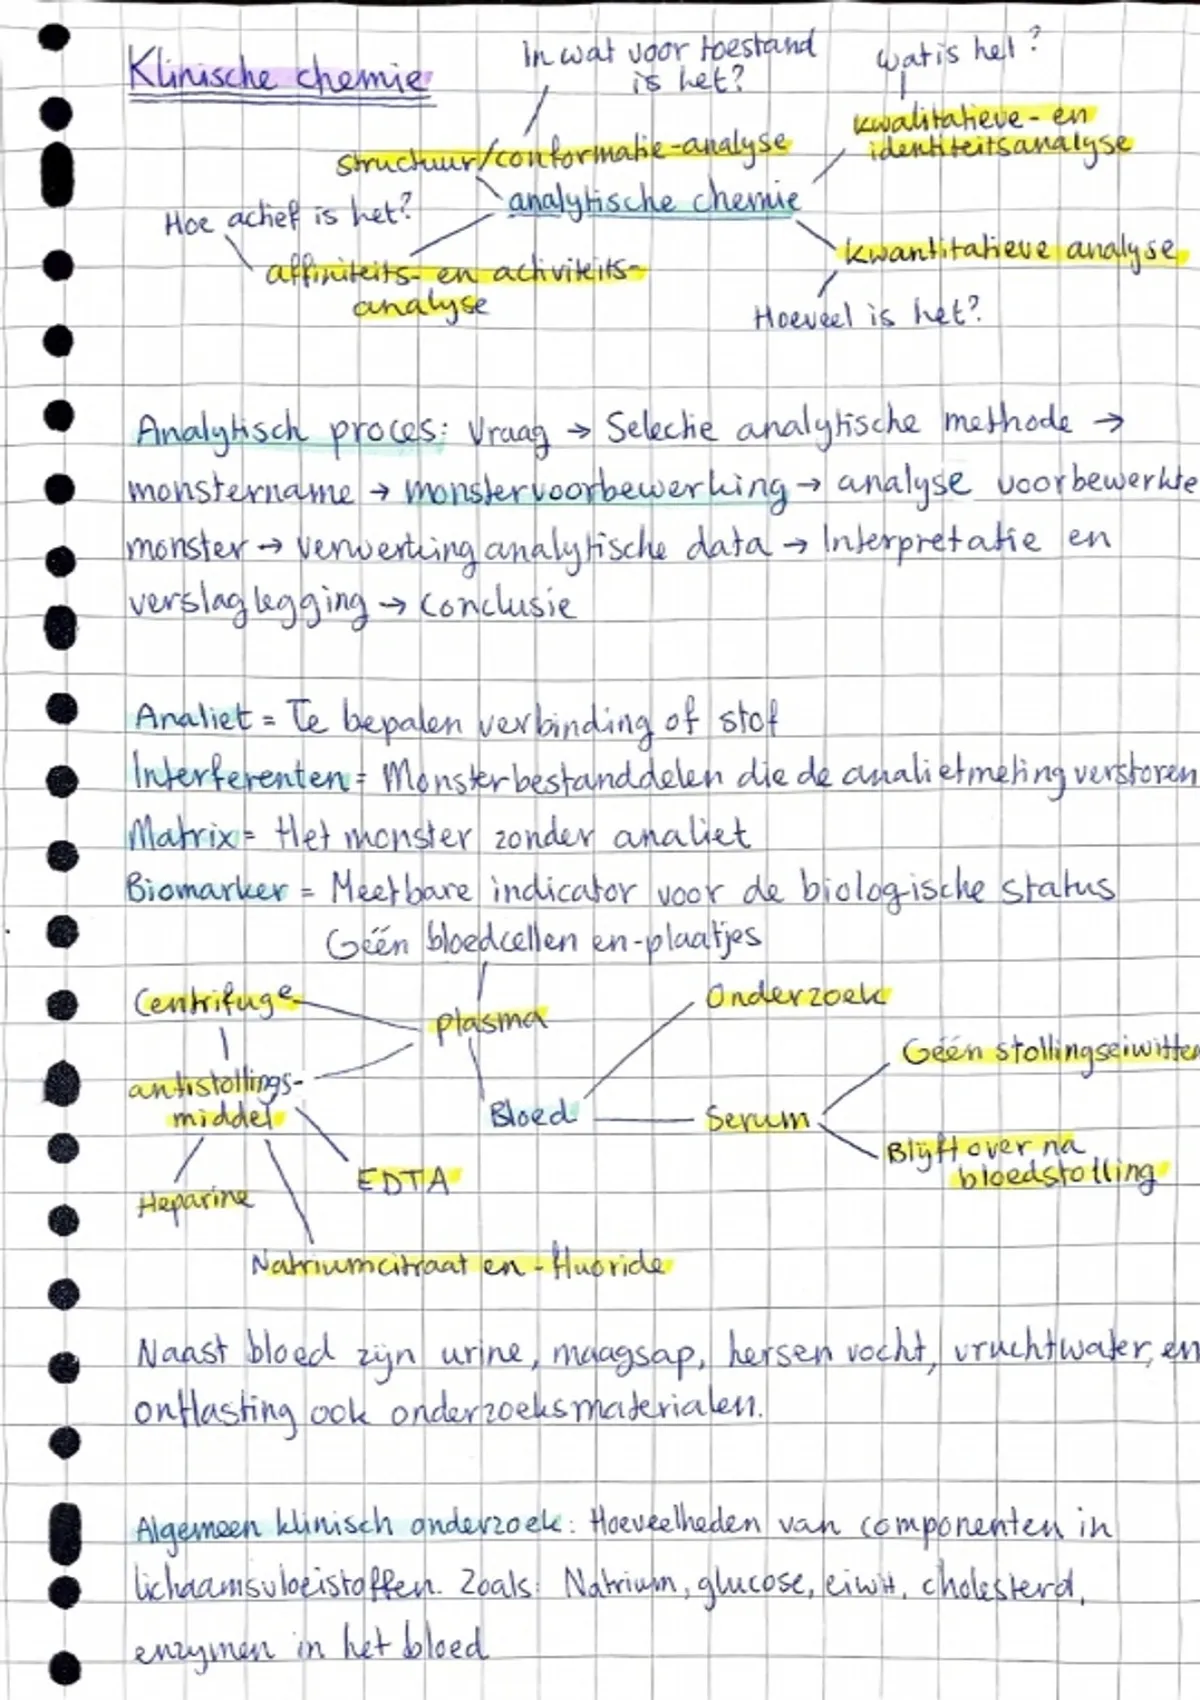 Klinische chemie
In wat voor toestand
is het?
wat is het?
structuur/conformatie-analyse
kwalitatieve- en
identiteitsanalyse
analytische chemie
Hoe actief is het?
affiniteits- en activiteits-
analyse
kwantitatieve analyse
Hoeveel is het?
Analytisch proces: Vraag → Selectie analytische methode →
monstername → monstervoorbewerking → analyse voorbewerkte
monster → verwerking analytische data → Interpretatie en
verslaglegging → conclusie
Analiet = Te bepalen verbinding of stof
Interferenten = Monsterbestanddelen die de analietmeting verstoren
Matrix = Het monster zonder analiet
Biomarker = Meetbare indicator voor de biologische status
Géén bloedcellen en -plaatjes
Centrifuge
plasma
Onderzoek
Géén stollingseiwitten
antistollings-
middel
Bloed
Serum
Blijft over na
bloedstolling
EDTA
Heparine
Natriumcitraat en -fluoride
Naast bloed zijn urine, maagsap, hersenvocht, vruchtwater, en
ontlasting ook onderzoeksmaterialen.
Algemeen klinisch onderzoek: Hoeveelheden van componenten in
lichaamsvloeistoffen. Zoals: Natrium, glucose, eiwit, cholesterol,
enzymen in het bloed